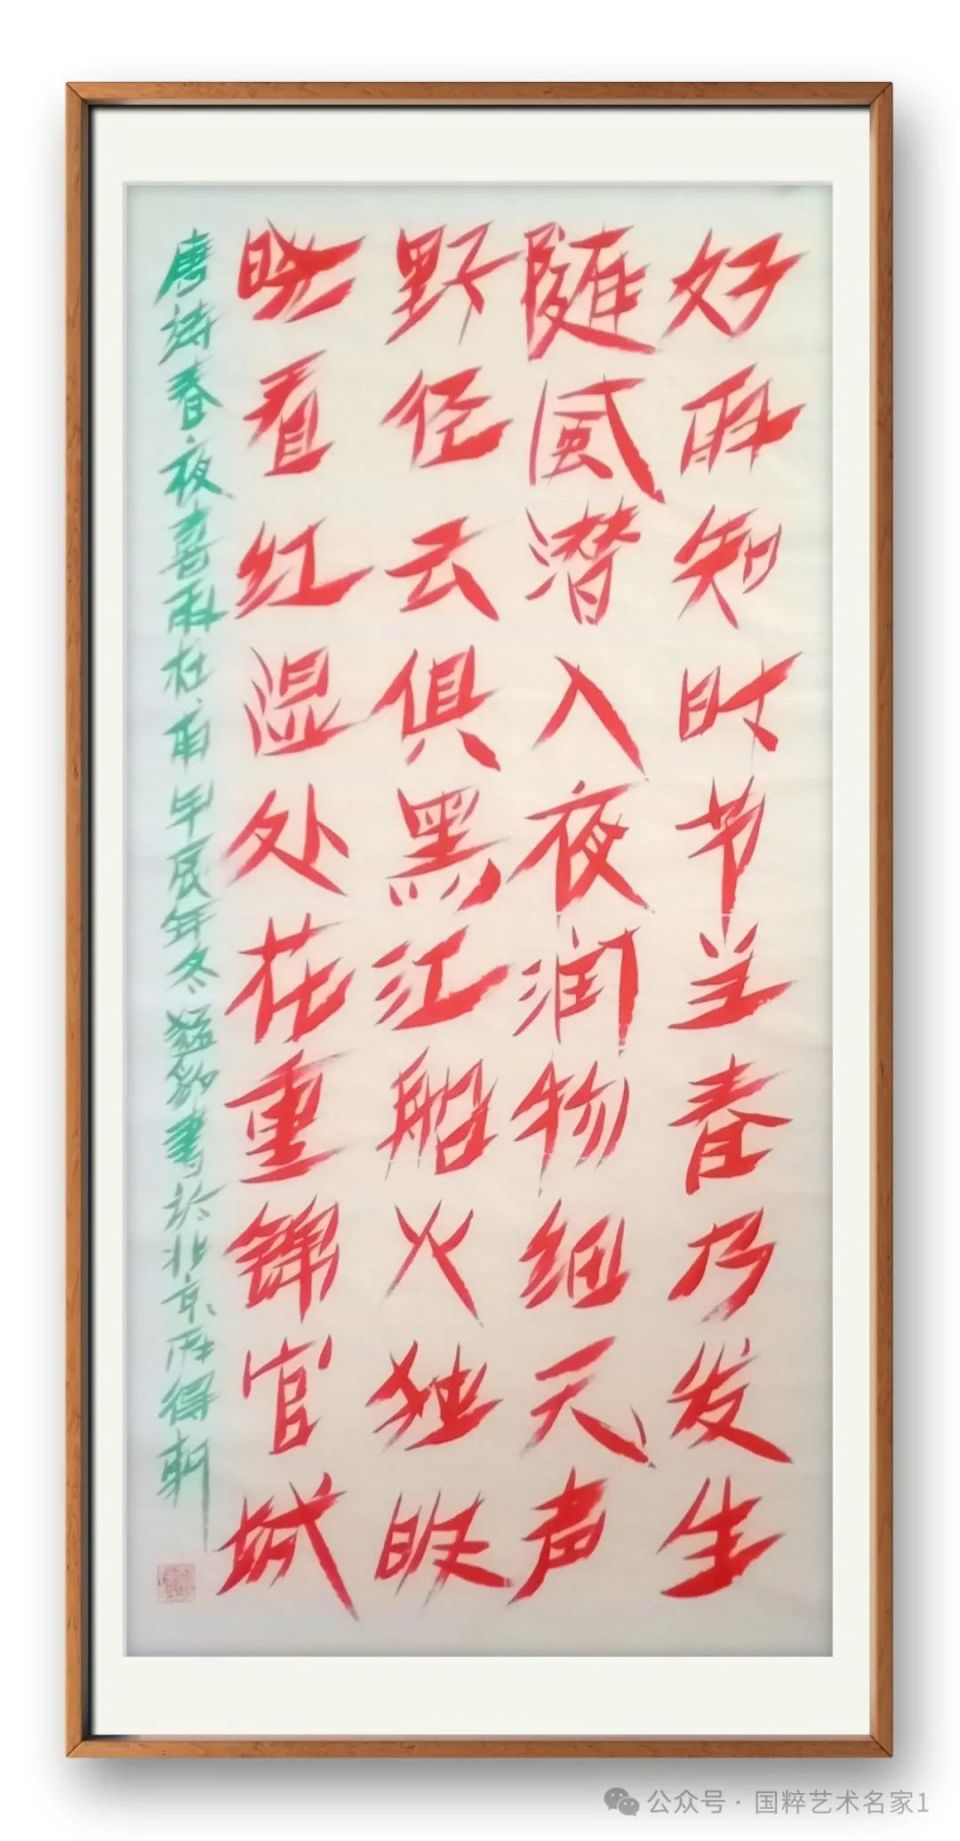 好雨知时节当春乃发生
随风潜入夜润物细天声
野径云俱黑江船火独明
晓看红湿处花重锦官城
唐詩春夜喜雨杜甫甲辰年冬猛書於北京得軒
公众号·国粹艺术名家1